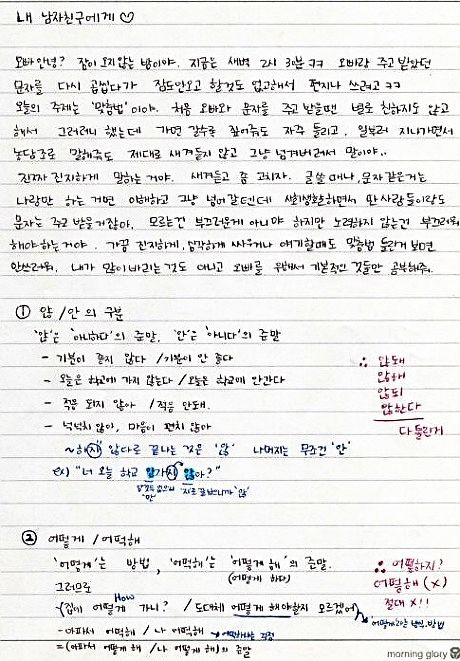 내 남자친구에게 ♡
오빠 안녕? 잠이 오지않는 밤이야. 지금은 새벽 2시 30분 ㅋㅋ 오빠랑 주고 받았던
문자를 다시 곱씹다가 잠도안오고 할것도 없고해서 편지나 쓰려고 ㅋㅋ
오늘의 주제는 '맞춤법' 이야. 처음 오빠와 문자를 주고 받을땐 별로 친하지도 않고
해서 그러려니 했는데 가면 갈수록 짚어줘도 자주 틀리고, 일부러 지나가면서
농담조로 말해줘도 제대로 새겨듣지 않고 그냥 넘겨버려서 말이야..
진짜 진지하게 말하는 거야. 새겨듣고 좀 고치자. 글 쓸 때나, 문자 같은거는
나랑만 하는 거면 이해하고 그냥 넘어갈텐데 사회생활하면서 만 사람들이랑도
문자는 주고 받을거잖아. 모르는건 부끄러운게 아니야 하지만 노력하지 않는건 부끄러워
해야하는거야. 가끔 진지하게, 심각하게 싸우거나 얘기할때도 맞춤법 틀린거 보면
안쓰러워. 내가 많이 바라는것도 아니고 오빠를 위해서 기본적인 것들만 공부해줘.
① 않/안의 구분
'않'은 '아니하다'의 준말, '안'은 '아니다'의 준말
- 기분이 좋지 않다 / 기분이 안 좋다
- 오늘은 학교에 가지 않는다 / 오늘은 학교에 안간다
- 적응 되지 않아 / 적응 안돼.
- 넉넉치 않아, 마음이 편치 않아
∴ 않돼
않해
않되
않한다
다 틀린거
~하지 않다로 끝나는 것은 '않' 나머지는 무조건 '안'
ex) "너 오늘 학교 안가지 않아?"
'안' '지'로 끝났으니까 '않'
② 어떻게 / 어떡해
'어떻게'는 방법, '어떡해'는 '어떻게 해'의 준말.
(어떻게 하다)
그러므로
How
(집에 어떻게 가니? / 도대체 어떻게 해야할지 모르겠어)
- 아파서 어떡해 / 나 어떡해
= (아파서 어떻게 해 / 나 어떻게 해)의 준말
∴ 어떻하지?
어떻해 (X)
절대 X!!
morning glory